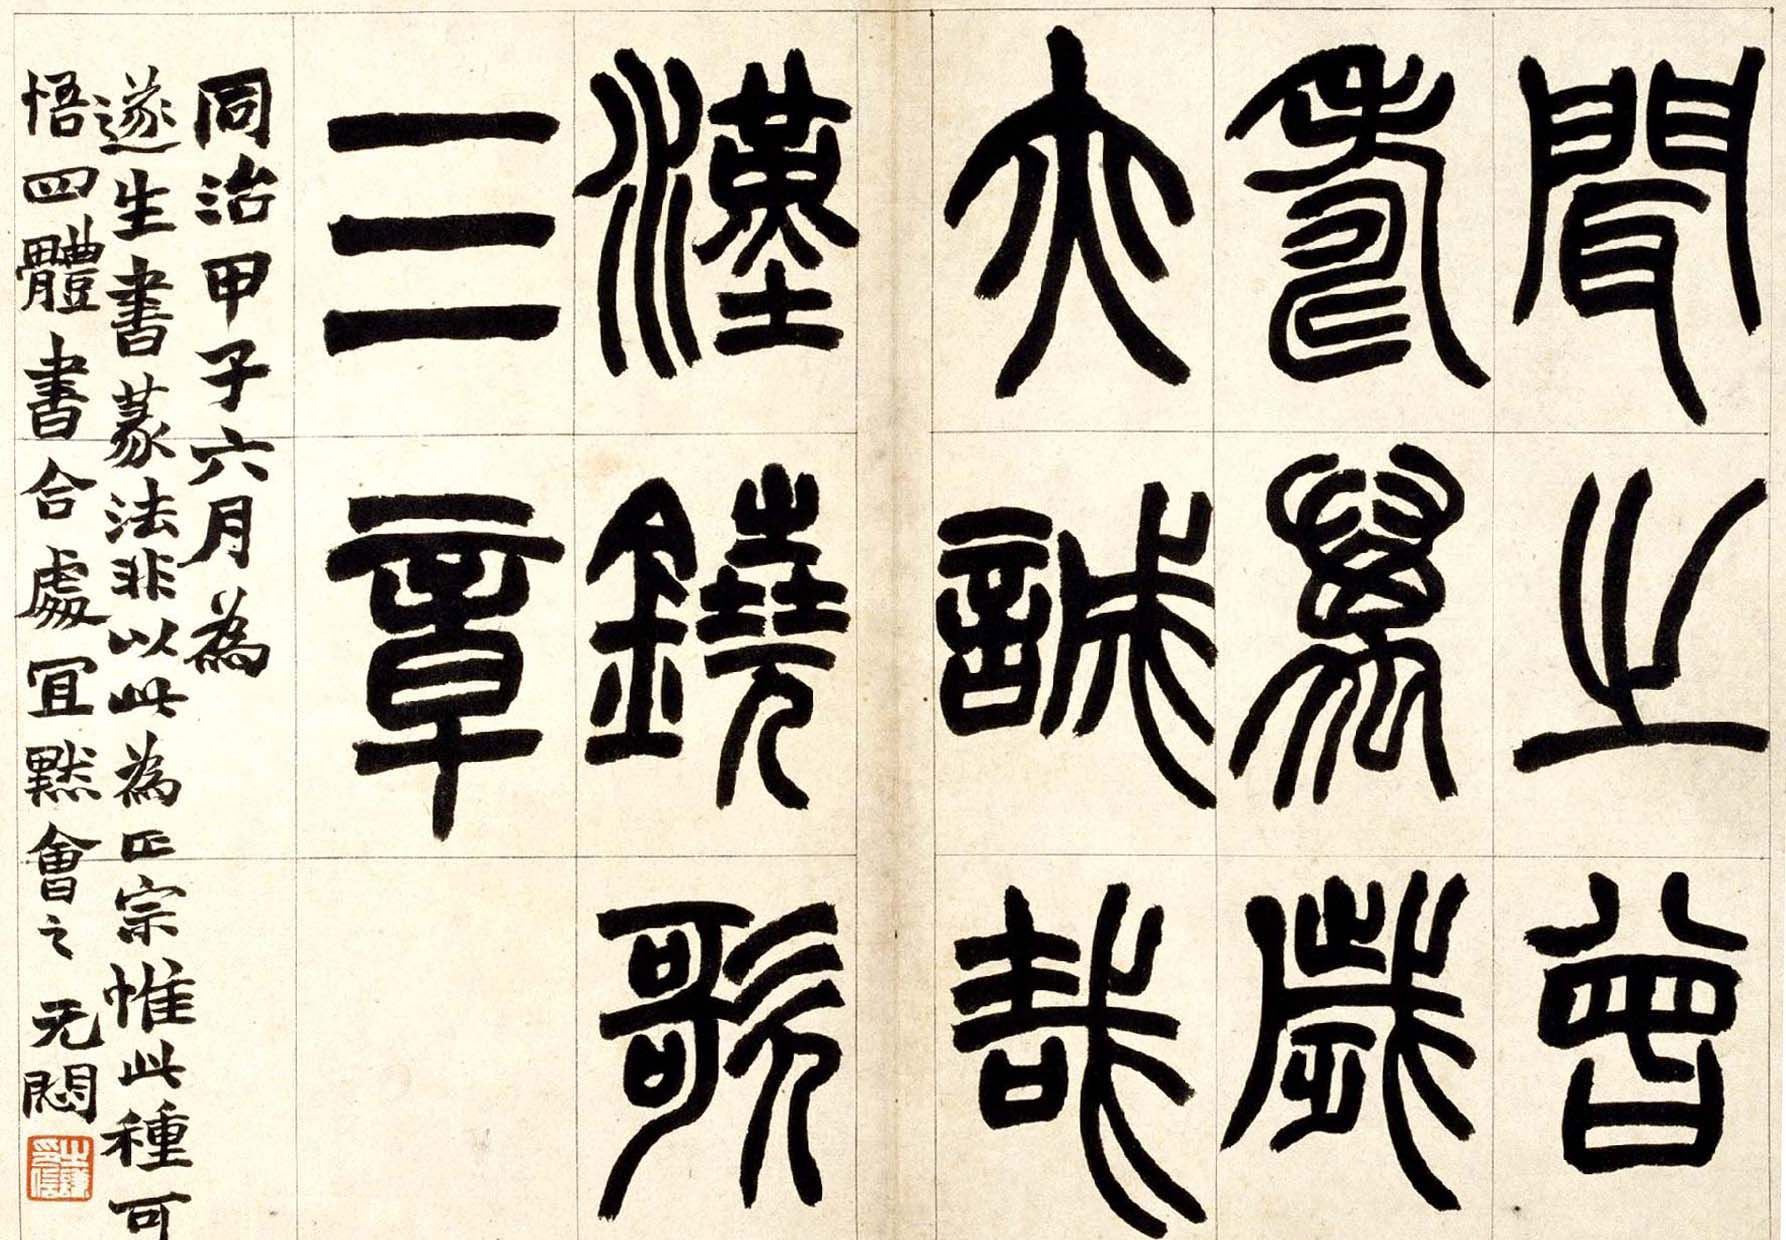 聞之曾
壽萬歲
亦誠哉
漢鐃歌
三章
同治甲子六月為
遂生書篆法非以此為正宗惟此種可
悟四體書合處冝黙會之无悶
之謙
印信